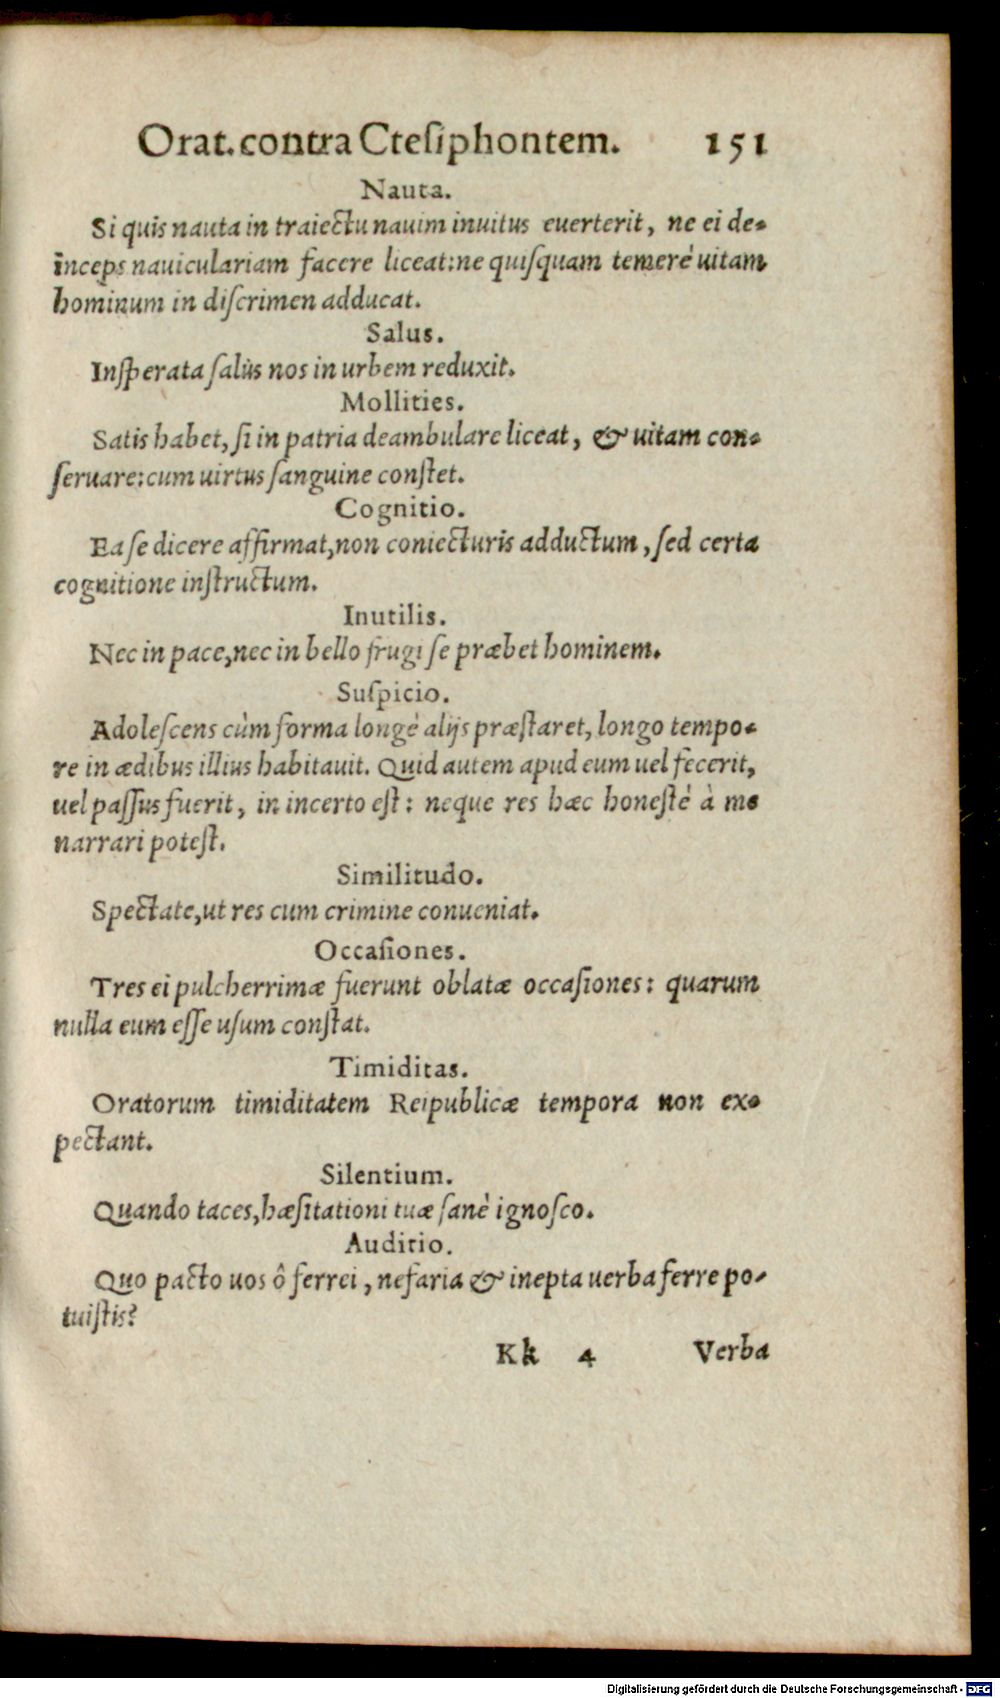 Orat. contra Ctesiphontem. 151
Nauta.
Si quis nauta in traiectu nauim inuitus euerterit, ne ei de-
inceps nauiculariam facere liceat: ne quisquam temerè uitam
hominum in discrimen adducat.
Salus.
Insperata salùs nos in urbem reduxit.
Mollities.
Satis habet, si in patria deambulare liceat, & uitam con-
seruare: cum uirtus sanguine constet.
Cognitio.
Ea se dicere affirmat, non coniecturis adductum, sed certa
cognitione instructum.
Inutilis.
Nec in pace, nec in bello frugi se præbet hominem.
Suspicio.
Adolescens cùm forma longè alijs præstaret, longo tempo-
re in ædibus illius habitauit. Quid autem apud eum uel fecerit,
uel passus fuerit, in incerto est: neque res hæc honestè à me
narrari potest.
Similitudo.
Spectate, ut res cum crimine conueniat.
Occasiones.
Tres ei pulcherrimæ fuerunt oblatæ occasiones: quarum
nulla eum esse usum constat.
Timiditas.
Oratorum timiditatem Reipublicæ tempora non ex-
pectant.
Silentium.
Quando taces, hæsitationi tuæ sanè ignosco.
Auditio.
Quo pacto uos ô ferrei, nefaria & inepta uerba ferre po-
tuistis?
Kk 4 Verba
Digitalisierung gefördert durch die Deutsche Forschungsgemeinschaft - DFG